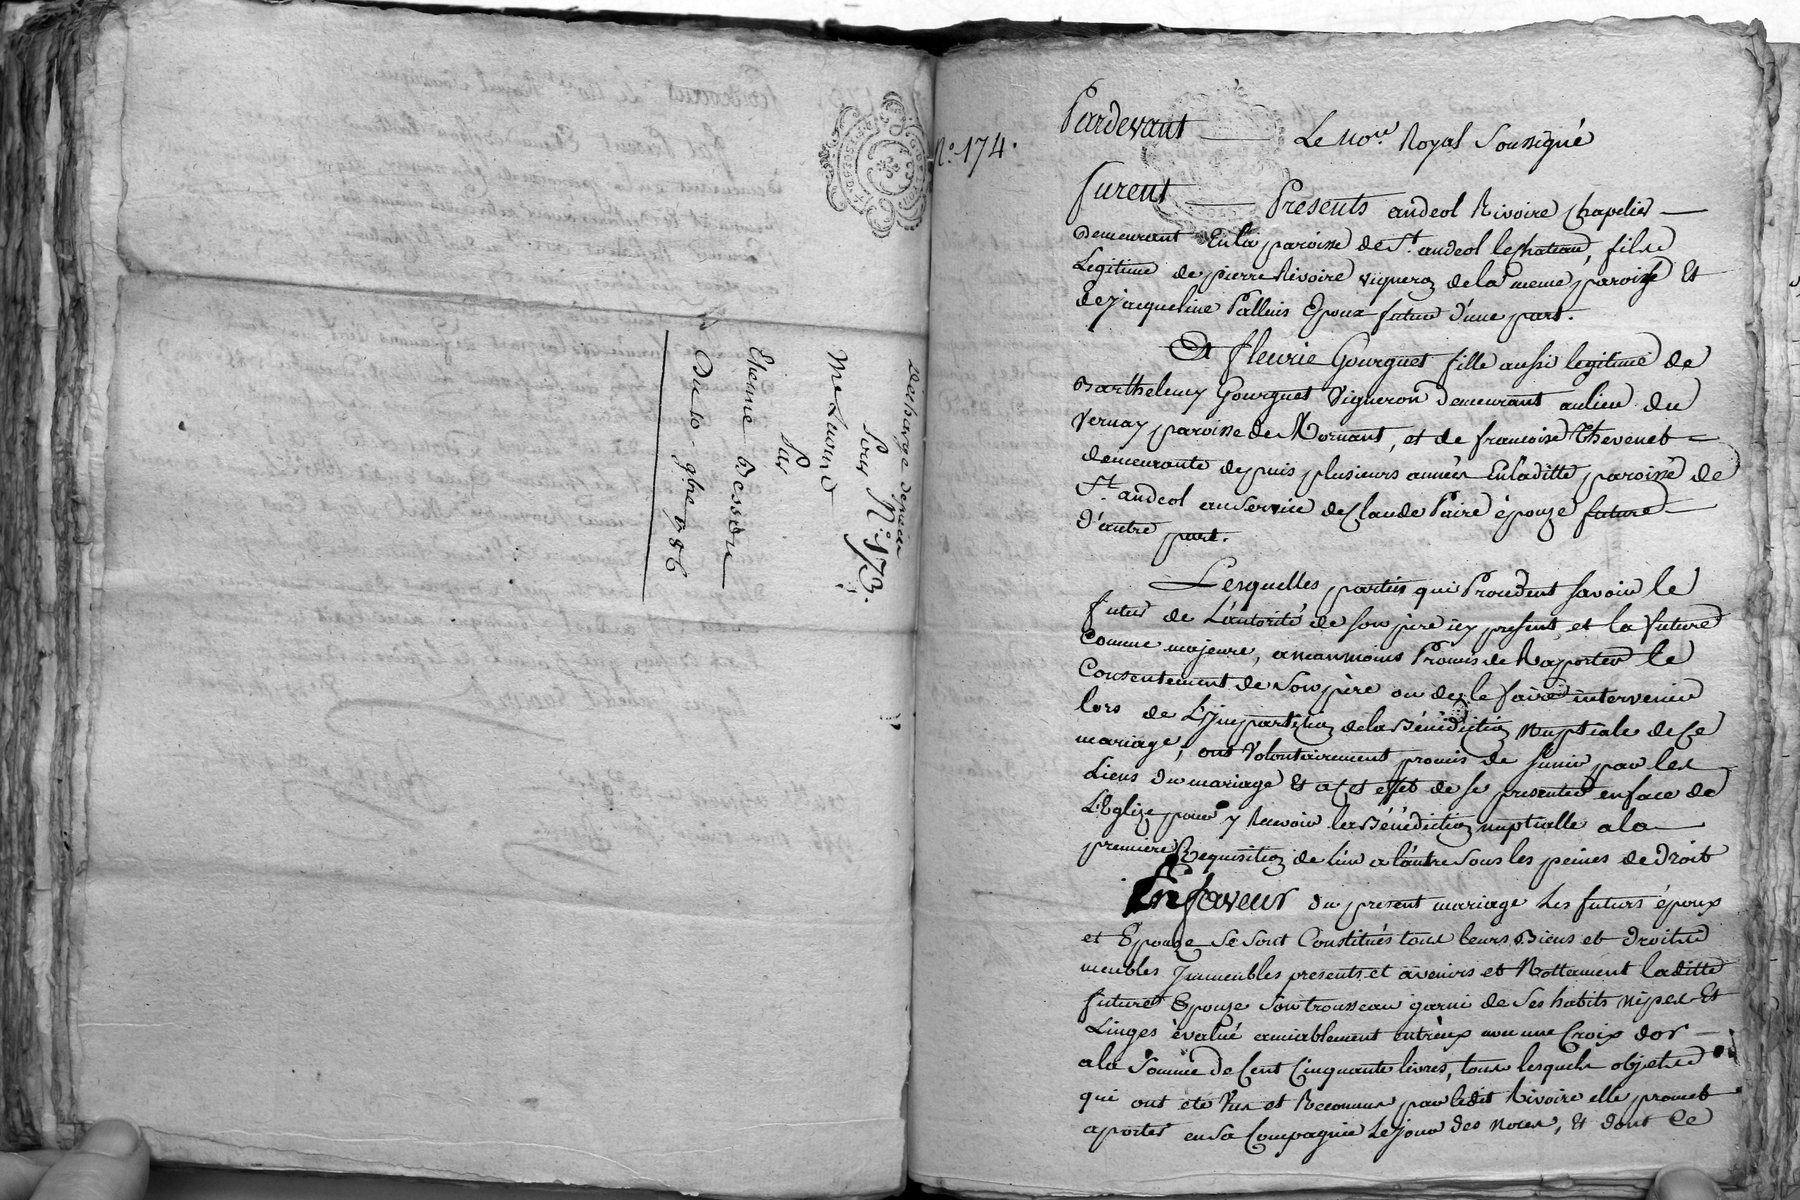 Decharge depiece
Sous N.° 173.
Me Laurend
Par
Etienne Besson
Du 10 9bre 1786
N.° 174.
Pardevant Le No.re Royal Soussigné
furent Presents andeol Rivoire Chapelier
Demeurant En la paroisse de St. andeol le chateau, fils
Legitime de pierre Rivoire vigneron de la meme paroisse Et
de jacqueline Palluis Epoux futur d'une part.
Et fleurie Gourguet fille aussi legitime de
Barthelemy Gourguet Vigneron demeurant au lieu du
Vernay paroisse de Mornant, et de francoise Thevenet
demeurante depuis plusieurs années En laditte paroisse de
St. andeol au service de Claude Paire épouze future
d'autre part.
Lesquelles parties qui Procedent savoir le
futur de L'autorité de son père icy present, et la future
Comme majeure, a neanmoins Promis de Raporter le
Consentement de son père ou de le faire intervenir
lors de L'impartition de la Bénédiction nuptiale de Ce
mariage, ont volontairement promis de s'unir par les
Liens du mariage Et a Cet effet de se presenter en face de
L'Eglize pour y Recevoir la Bénédiction nuptialle a la
premiere Requisition de L'un a l'autre sous les peines de droit
En faveur du present mariage les futurs époux
et Epouze se sont Constitués tous leurs Biens et droits
meubles Immeubles presents et avenirs et Nottament laditte
future Epouze son trousseau garni de ses habits nipes Et
Linges évalué amiablement entr'eux avec une Croix d'or
a la Somme de Cent Cinquante livres, tous lesquels objets
qui ont eté Vus et Reconnus par ledit Rivoire elle promet
aporter en sa Compagnie le jour des noces, Et dont Ce